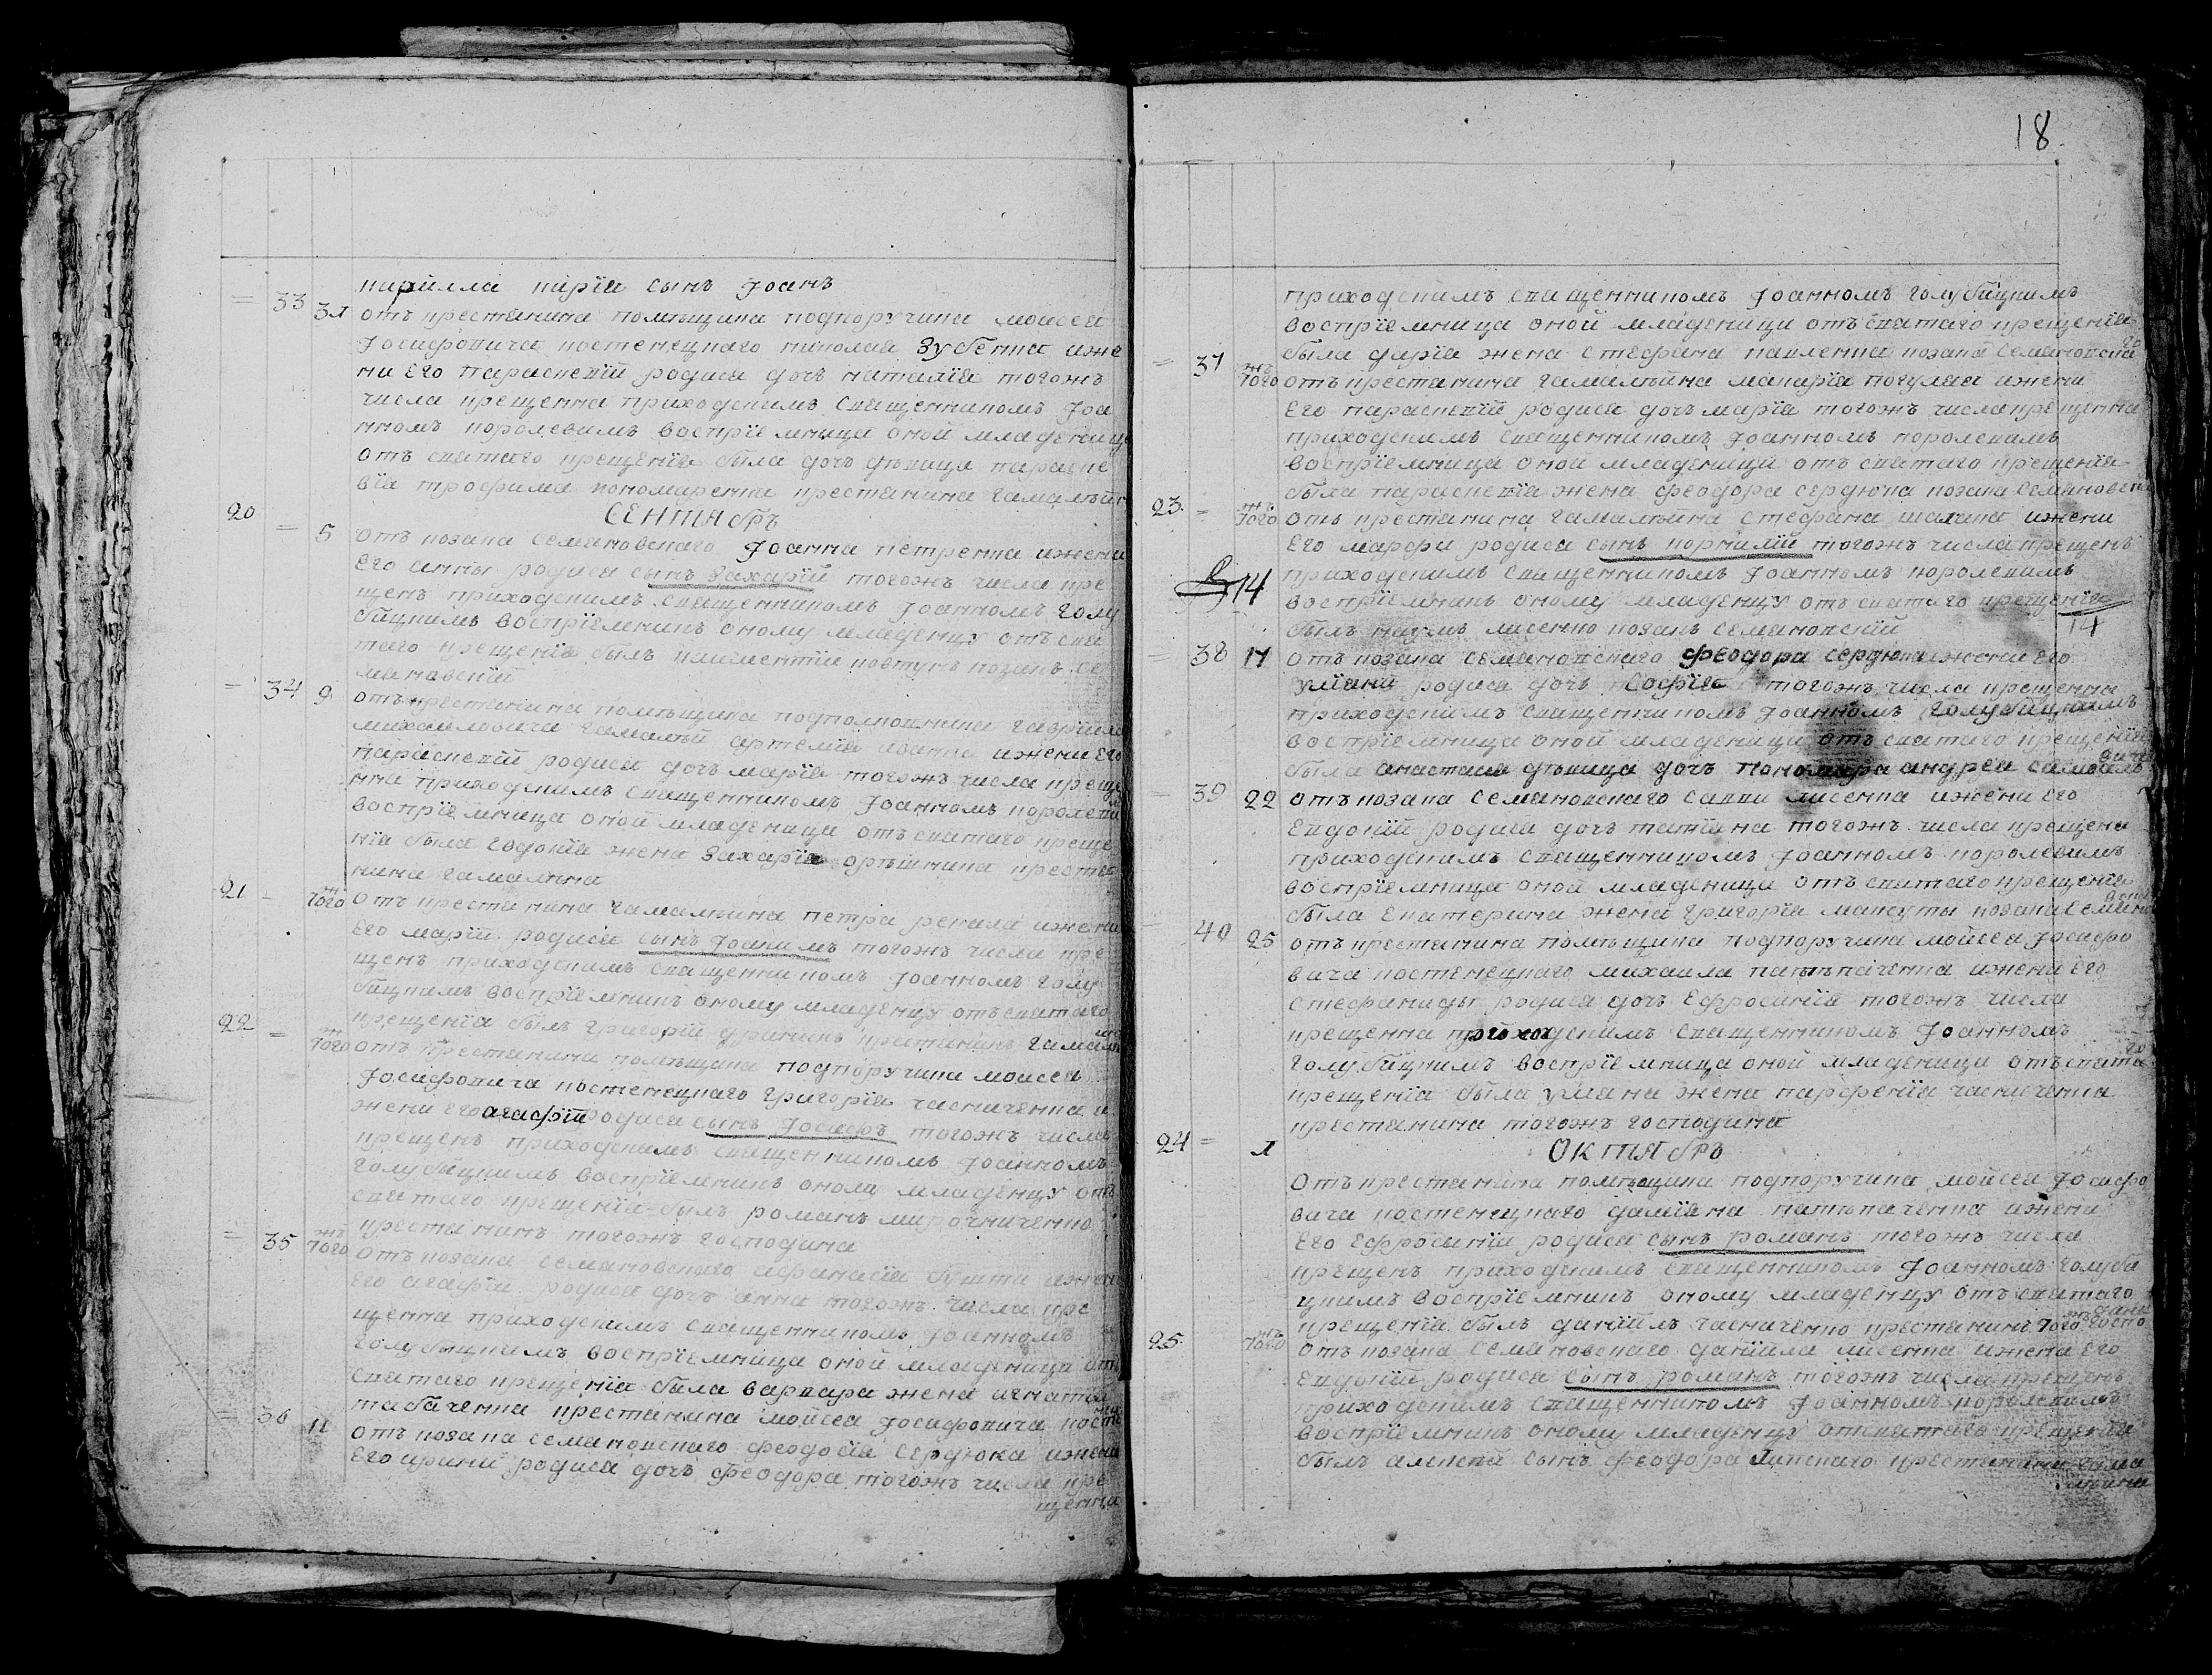 кирилла кирїя сынъ Іоанъ
= 33 31 отъ крестянина помѣщика подпоручика моисея
Іосифовича костенецкаго николая Зубенка ижe
ни Его Параскевїй родися дочъ наталїя тогожъ
числа крещенна приходскимъ священникомъ Іоа
нномъ королевимъ восприемница оной младеници
отъ святаго крещенїя была дочъ дѣвица параске
вїа трофима пономаренка крестянина гамалѣи
20 СЕНТЯбРЪ
= 5 отъ козака семяновскаго Іоанна петренка ижени
Его анны родися сынъ Захарїй тогожъ числа кре
щенъ приходскимъ священникомъ Іоанномъ голу
бицкимъ восприемникъ оному младенцу отъ свя
таго крещенїя былъ климентїи ковтунъ козакъ се
мяновскїй
= 34 9 отъ крестянина помѣщика подполковника гаврїила
михайловича гамалѣи артемїя ижени Его
параскевїй родися дочъ марїя тогожъ числа креще
нна приходскимъ священникомъ Іоанномъ королеви
восприемница оной младеници отъ святаго креще
нїа была Евдокїя жена Захарїя орѣшника крестя
нина гамалѣина
21 – тогожъ отъ крестянина гамалѣина петра рекала ижени
Его марїи родися сынъ Іоакимъ тогожъ числа кре
щенъ приходскимъ священникомъ Іоанномъ голу
бицкимъ восприемникъ оному младенцу отъ святаго
крещенїа былъ григорїй крестянинъ гамалѣ
22 = тогожъ отъ крестянина помѣщика подпоручика моисея
Іосифовича костенецкаго григорїя часниченка и
жени Его агафїи родися сынъ Іосифъ тогожъ числа
крещенъ приходскимъ священникомъ Іоанномъ
голубицкимъ восприемникъ оному младенцу отъ
святаго крещенїй былъ романъ мирочниченко
крестянинъ тогожъ господина
= 35 тогожъ отъ козака семяновскаго афанасїя ижени
Его агафїи родися дочъ анна тогожъ числа кре
щенна приходскимъ священникомъ Іоанномъ
голубицкимъ восприемница оной младеници отъ
святаго крещенїа была варвара жена игнатїя
табаченка крестянина мойсея Іосифовича косте
= 36 11 отъ козака семяновскаго феодосїя Сердюка ижени
Его ирини родися дочъ феодора тогожъ числа кре
щенна
18
приходскимъ священникомъ Іоанномъ голубицкимъ
восприемница оной младеници отъ святаго крещенїя
была дарїя жена стефана павленка козака семяновска
го
= 37 тогожъ отъ крестянина гамалѣина макарїя когулая ижени
Его параскевїй родися дочъ марїя тогожъ числа крещенна
приходскимъ священникомъ Іоанномъ королевимъ
восприемница оной младеници отъ святаго крещенїя
была параскевїя жена феодора сердюка козака семяновска
23. = тогожъ отъ крестянина гамалѣина стефана шахана ижени
Его марфи родися сынъ корнилїй тогожъ числа крещенъ
приходскимъ священникомъ Іоанномъ королевимъ
14 восприемникъ оному младенцу отъ святаго крещенїя
былъ наумъ лисенко козакъ семяновскїй 14
= 38 17 отъ козака семяновскаго феодора сердюка ижени Его
улїани родися дочъ Софїя тогожъ числа крещенна
приходскимъ священникомъ Іоанномъ голубицкимъ
восприемница оной младеници отъ святаго крещенїя
была анастасїя дѣвица дочъ пономаря андрея самоилo
вича
= 39 22 отъ козака семяновскаго савви лисенка ижени Его
Евдокїй родися дочъ татїяна тогожъ числа крещена
приходскимъ священникомъ Іоанномъ королевимъ
восприемница оной младеници отъ святаго крещенїя
была Екатерина жена григорїя максуты козака семянo
= 40 25 отъ крестянина помѣщика подпоручика мойсея Іосифо
вича костенецкаго михаила ижени Его
стефаниды родися дочъ Ефросинїя тогожъ числа
крещенна приходскимъ священникомъ Іоанномъ
голубицкимъ восприемница оной младеници отъ свята
го
крещенїя была улїана жена парфенїя часниченка
крестянина тогожъ господина
24 = 1 ОКТЯбРЪ
отъ крестянина помѣщика подпоручика мойсея Іосифо
вича костенецкаго дамїяна ижени
Его Ефросинїи родися сынъ романъ тогожъ числа
крещенъ приходскимъ священникомъ Іоанномъ голуби
цкимъ восприемникъ оному младенцу отъ святаго
крещенїя былъ данїилъ часниченко крестянинъ тогожъ господина
25. тогожъ отъ козака семяновскаго данїила лисенка ижени Его
Евдокїй родися сынъ романъ тогожъ числа крещенъ
приходскимъ священникомъ Іоанномъ королевимъ
восприемникъ оному младенцу отъ святаго крещенїя
былъ алексѣй сынъ феодора Липскаго крестянина гама
лѣина